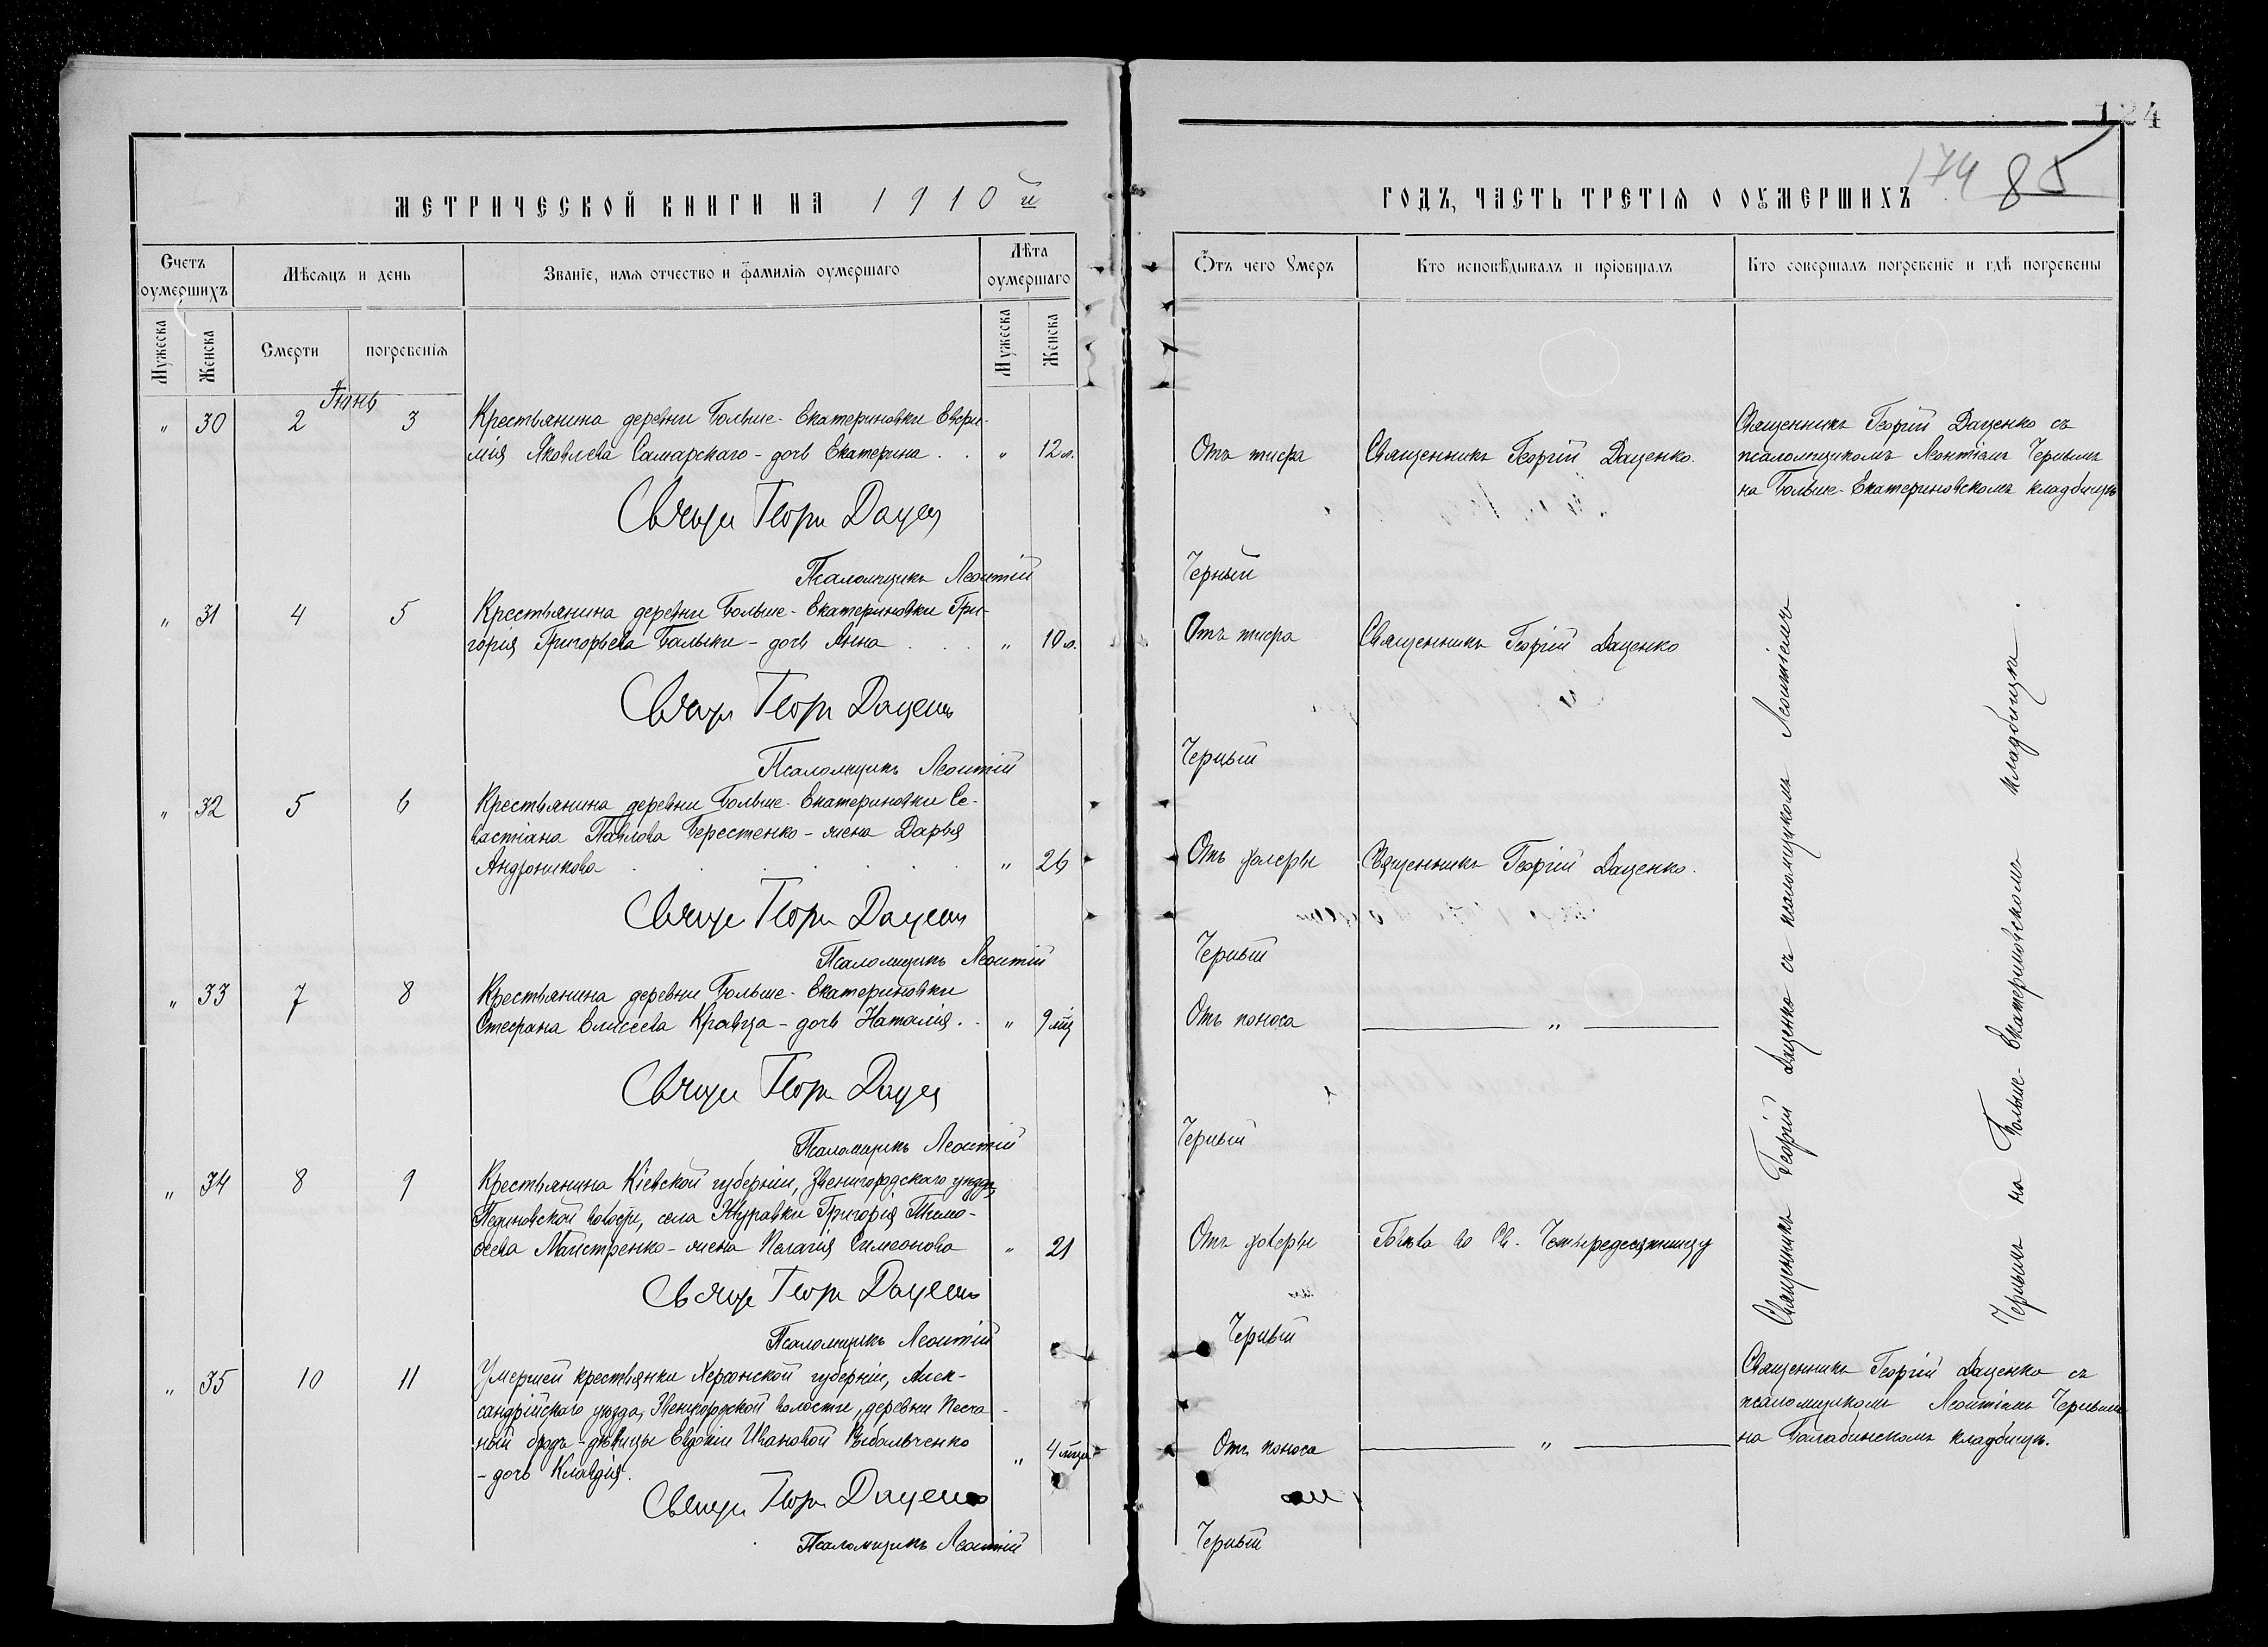 124
174 85
МЕТРИЧЕСКОЙ КНИГИ НА 1910й
ГОДЪ, ЧАСТЬ ТРЕТІЯ О ОУМЕРШИХЪ
Счетъ оумершихъ
Мѣсяцъ и день
Званіе, имя отчество и фамилія оумершаго
Лѣта оумершаго
Ѿтъ чего Умеръ
Кто исповѣдывалъ и пріобщалъ
Кто совершалъ погребеніе и гдѣ погребены
Мужеска
Женска
Смерти
погребенія
Мужеска
Женска
Іюнь
" 30 2 3
Крестьянина деревни Больше-Екатериновки Евфи-
мія Яковлева Самарскаго - дочь Екатерина . . " 12 л.
Отъ тифа
Священникъ Георгій Даценко.
Священникъ Георгій Даценко съ
псаломщикомъ Леонтіемъ Чернымъ
на Больше-Екатериновскомъ кладбищѣ
Священ Георг Дацен
Псаломщикъ Леонтій Черный
" 31 4 5
Крестьянина деревни Больше-Екатериновки Гри-
горія Григорьева Балыки - дочь Анна . . . " 10 л.
Отъ тифа
Священникъ Георгій Даценко
Священ Георг Даценко
Псаломщикъ Леонтій Черный
" 32 5 6
Крестьянина деревни Больше-Екатериновки Се-
вастіана Павлова Берестенко - жена Дарья
Андроникова . . . . . " 26
Отъ холеры
Священникъ Георгій Даценко.
Священ Георг Даценко
Псаломщикъ Леонтій Черный
" 33 7 8
Крестьянина деревни Больше-Екатериновки
Стефана Елисеева Кравца - дочь Наталія . . " 9 мц
Отъ поноса
"
Священ Георг Дацен
Псаломщикъ Леонтій Черный
" 34 8 9
Крестьянина Кіевской губерніи, Звенигородскаго уѣзда,
волости, села Журавки Григорія Тимо-
ѳеева Майстренко - жена Пелагія Симеонова " 21
Отъ холеры
Говѣла во Св. Четыредесятницу
Священ Георг Даценко
Псаломщикъ Леонтій Черный
Священникъ Георгій Даценко съ псаломщикомъ Леонтіемъ
Чернымъ на Больше-Екатериновскомъ кладбищѣ.
" 35 10 11
Умершей крестьянки Херсонской губерніи, Алек-
сандрійскаго уѣзда, Звенигородской волости, деревни Песча-
ный бродъ - дѣвицы Евдокіи Ивановой
- дочь Клавдія. " 4 мца
Отъ поноса
"
Священникъ Георгій Даценко съ
псаломщикомъ Леонтіемъ Чернымъ
на Балабинскомъ кладбищѣ.
Священ Георг Даценко
Псаломщикъ Леонтій Черный